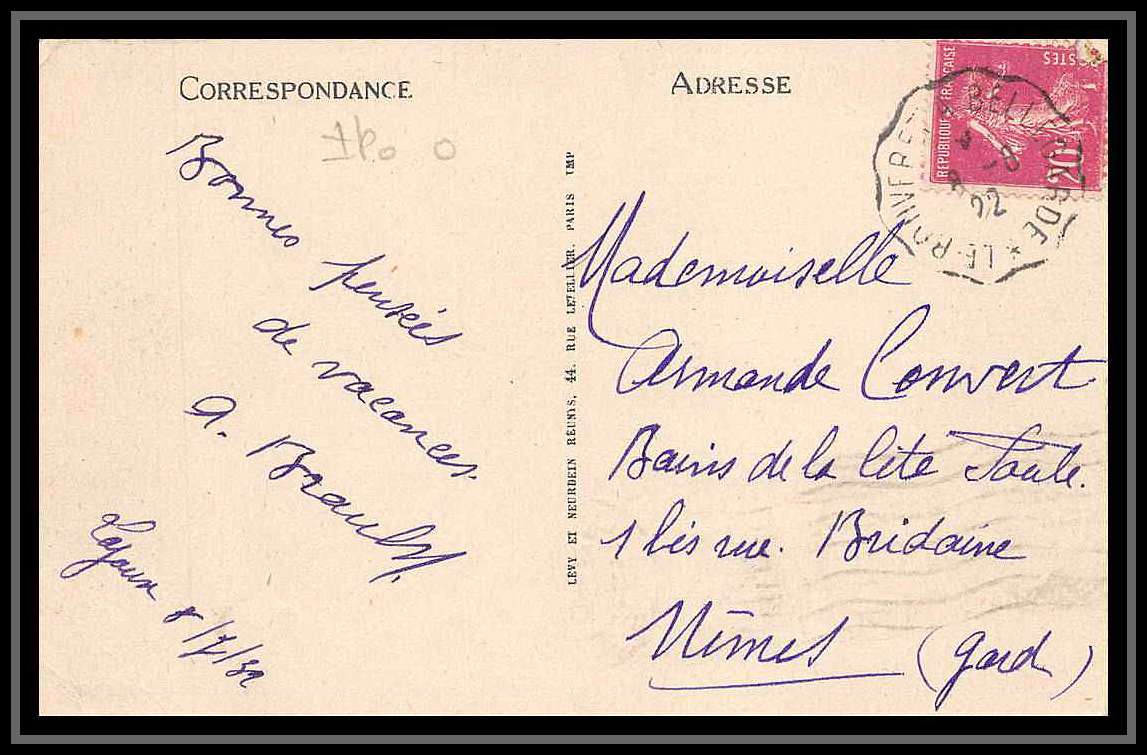 CORRESPONDANCE
ADRESSE
Bonnes pensées
de vacances.
A. Brault
8/7/32
LEVY ET NEURDEIN REUNIS, 44, RUE LETELLIER, PARIS IMP
REPUBLIQUE FRANCAISE
POSTES
20
Mademoiselle
Armande Convert
Bains de la Cité Foule.
1 bis rue. Bridaine
Nîmes (Gard)